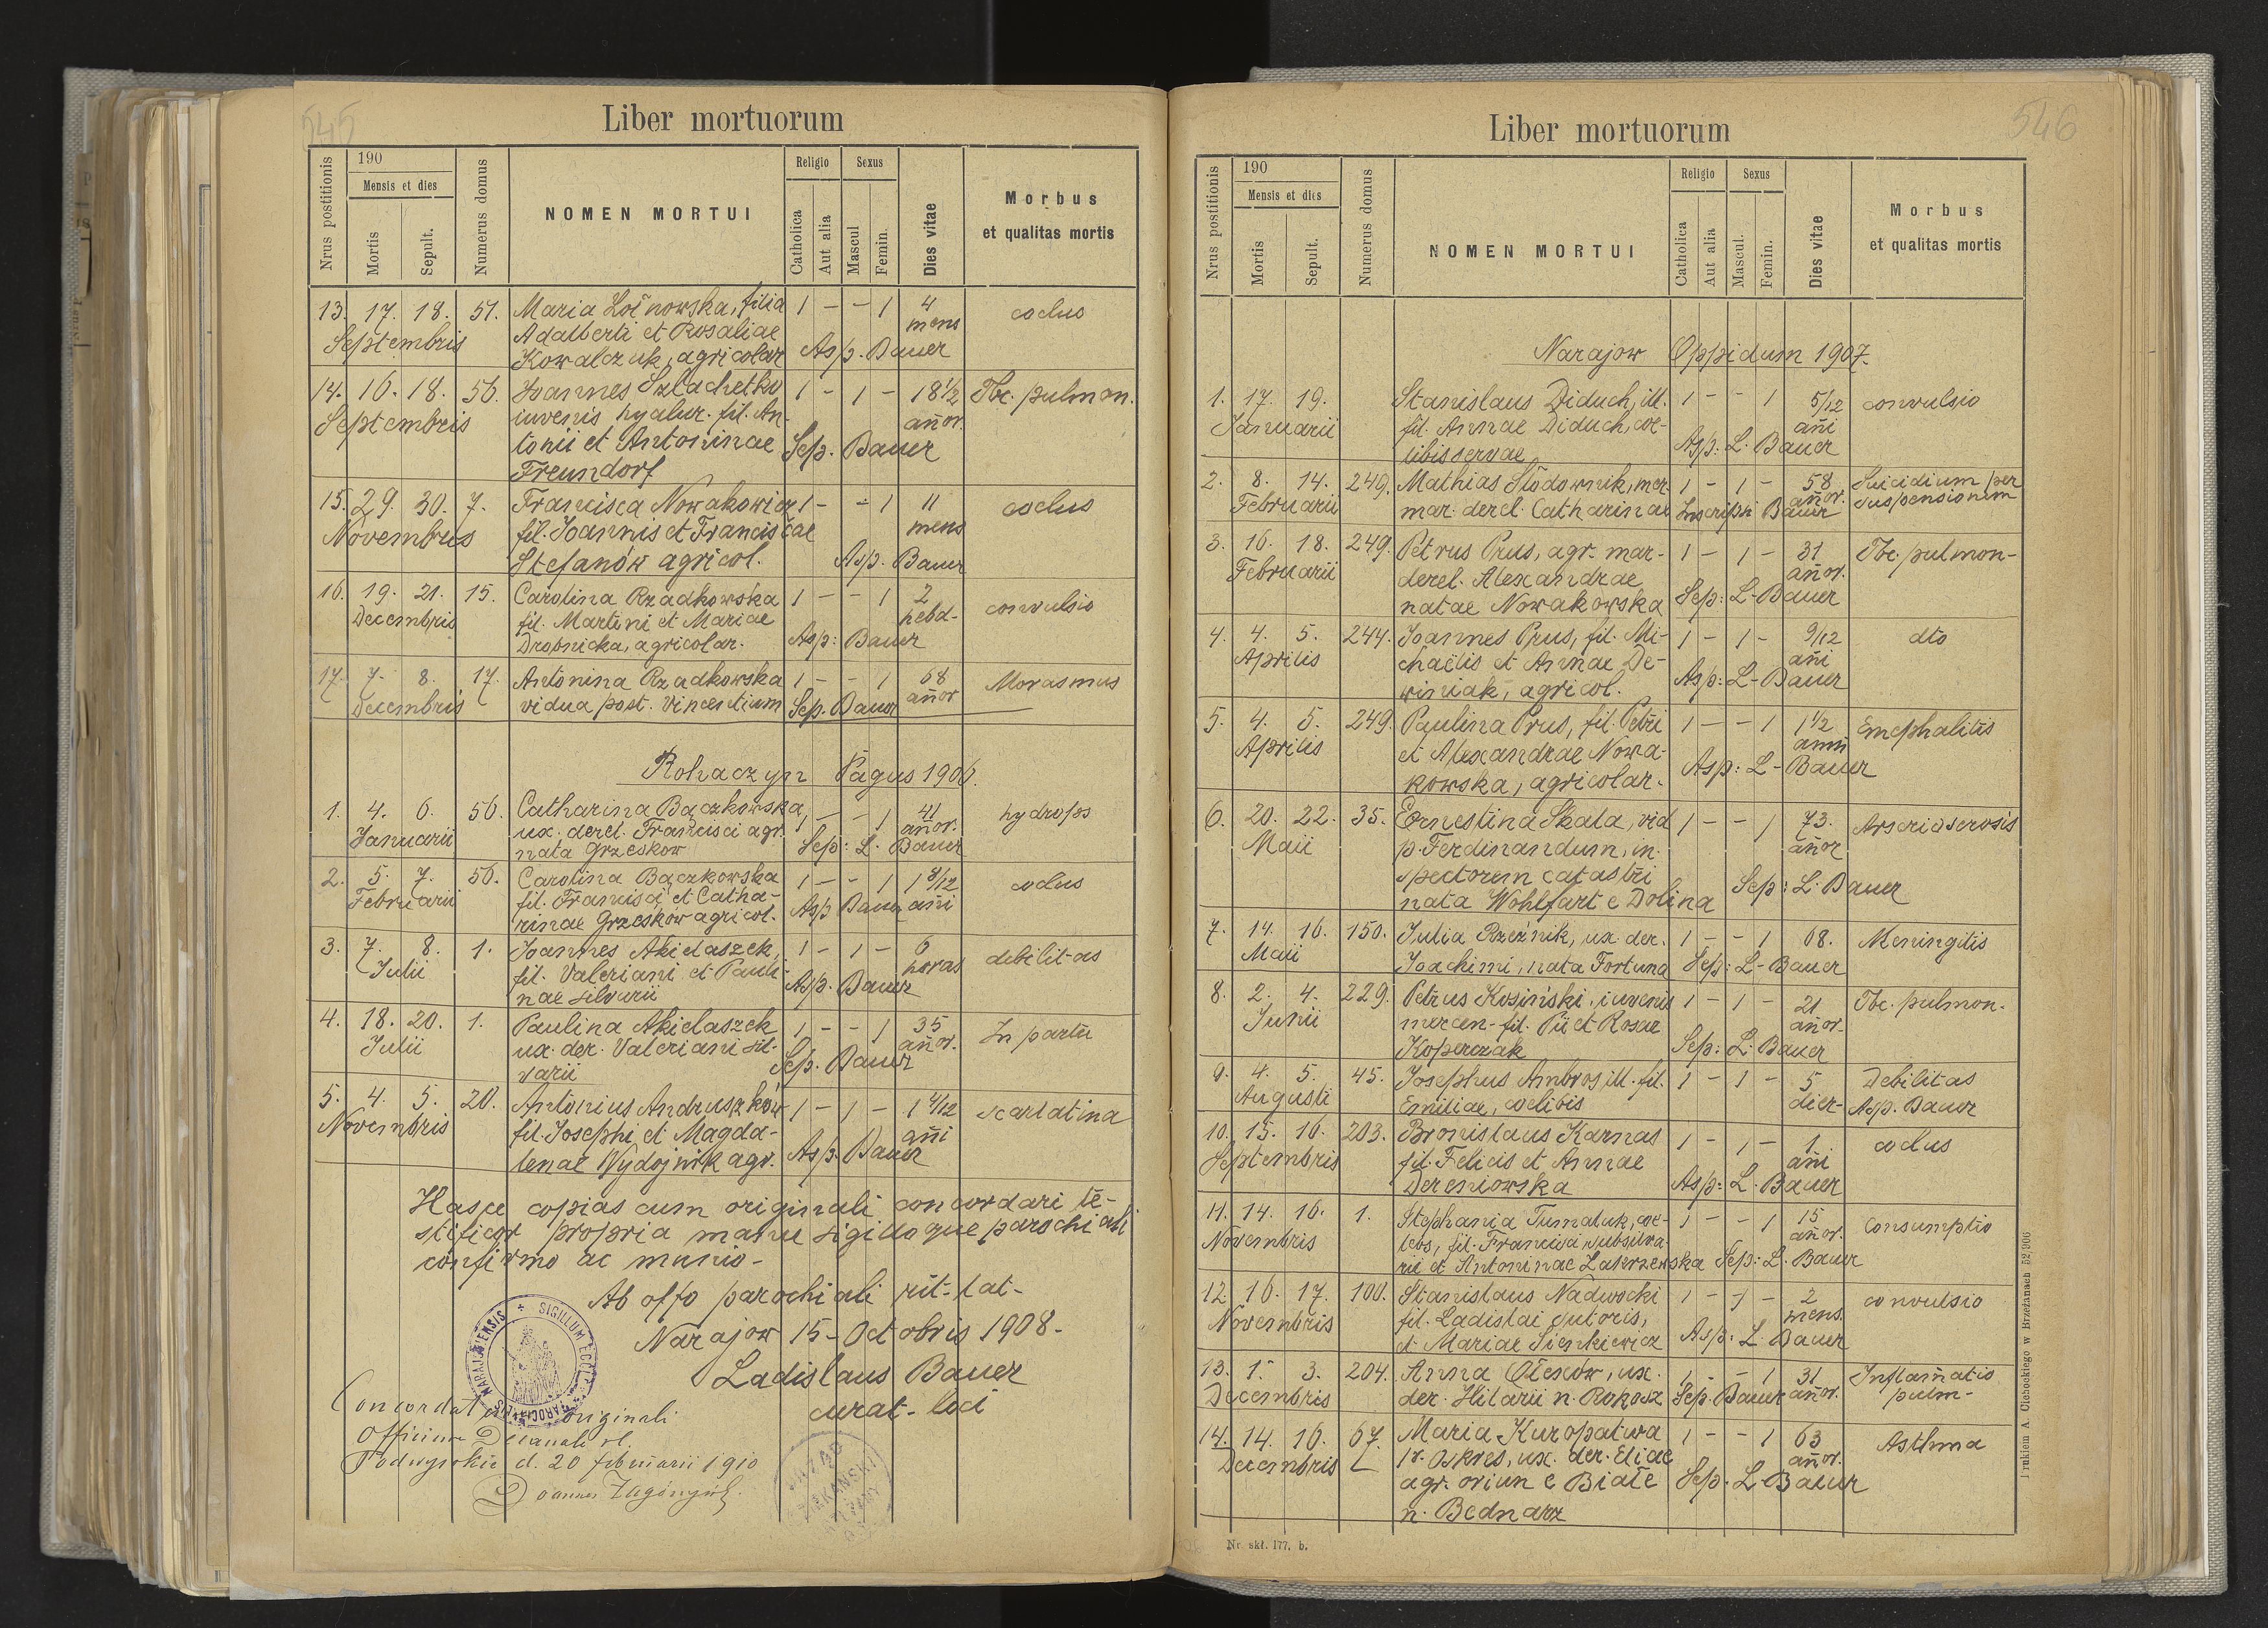 545
Liber mortuorum
Nrus postitionis
190
Mensis et dies
Mortis
Sepult.
Numerus domus
NOMEN MORTUI
Religio
Catholica
Aut alia
Sexus
Mascul
Femin.
Dies vitae
Morbus
et qualitas mortis
13. 17. 18. 51. Maria Łoinowska, filia 1 - - 1 4 coclus
Septembris Adalberti et Rosaliae mens
Kowalczuk, agricolar Asp. Bauer
14. 16. 18. 56. Joannes Szlachetko 1 - 1 - 18 1/2 Tbc. pulmon.
Septembris iuvenis hyalur. fil. An- añor.
tonii et Antoninae Sep. Bauer
Freundorf
15. 29. 30. 7. Francisca Nowakowicz 1 - - 1 11 coclus
Novembris fil. Joannis et Franciscae mens
Stefanów agricol. Asp. Bauer
16. 19. 21. 15. Carolina Rzadkowska 1 - - 1 2 convulsio
Decembris fil. Martini et Mariae hebd-
Drosnicka, agricolar. Asp: Bauer
17. 7. 8. 17. Antonina Rzadkowska 1 - - 1 68 Morasmus
Decembris vidua post. Vincentium Sep. Bauer añor
Rohaczyn Pagus 1906.
1. 4. 6. 56. Catharina Bączkowska, 1 - - 1 41 hydrops
Januarii ux. derel. Francisci agr. añor.
nata Grzeskow Sep: L. Bauer
2. 5. 7. 56. Carolina Bączkowska 1 - - 1 1 8/12 coclus
Februarii fil. Francisci et Catha- Asp Bauer añi
rinae Grzesków agricol.
3. 7. 8. 1. Joannes Akielaszek, 1 - 1 - 6 debilitas
Julii fil. Valeriani et Pauli- horas
nae silvarii Asp. Bauer
4. 18. 20. 1. Paulina Akielaszek 1 - - 1 35 In partu
Julii ux. der. Valeriani sil- añor.
varii Sep. Bauer
5. 4. 5. 20. Antonius Andruszków 1 - 1 - 1 4/12 scarlatina
Novembris fil. Josephi et Magda- añi
lenae Wydojnik agr. Asp. Bauer
Hasce copias cum originali concordari te-
stificor propria manu sigilloque parochiali
confirmo ac munio-
Ab offo parochiali rit-lat-
Narajow 15-Octobris 1908-
Ladislaus Bauer
curat-loci
SIGILLUM
NARAJOVIENSIS
Concordat originali
Officium Decanale rl.
Podwysokie d. 20 februarii 1910
546
Liber mortuorum
Nrus postitionis
190
Mensis et dies
Mortis
Sepult.
Numerus domus
NOMEN MORTUI
Religio
Catholica
Aut alia
Sexus
Mascul.
Femin.
Dies vitae
Morbus
et qualitas mortis
Narajow Oppidum 1907.
1. 17. 19. Stanislaus Diduch, ill. 1 - - 1 5/12 convulsio
Januarii fil. Annae Diduch, coe- añi
libis servae Asp: L. Bauer
2. 8. 14. 249. Mathias Słodownik, mer. 1 - 1 - 58 Suicidium per
Februarii mar. derel. Catharinae Inscripti Bauer añor. suspensionem
3. 16. 18. 249. Petrus Prus, agr. mar- 1 - 1 - 31 Tbc. pulmon-
Februarii derel. Alexandrae añor.
natae Nowakowska Sep: L-Bauer
4. 4. 5. 244. Joannes Prus, fil. Mi- 1 - 1 - 9/12 dto
Aprilis chaëlis et Annae De- añi
winiak, agricol. Asp: L-Bauer
5. 4. 5. 249. Paulina Prus, fil. Petri 1 - - 1 1 1/2 Emephalitis
Aprilis et Alexandrae Nowa- anni
kowska, agricolar. Asp: L-Bauer
6. 20. 22. 35. Ernestina Skala, vid 1 - - 1 73. Arserioserosis
Maii p. Ferdinandum, in- añor
spectorem catastri Sep: L. Bauer
nata Wohlfart e Dolina
7. 14. 16. 150. Julia Rzeźnik, ux. der. 1 - - 1 68. Meningitis
Maii Joachimi, nata Fortuna Sep: L-Bauer
8. 2. 4. 229. Petrus Kosiński, iuvenis 1 - 1 - 21 Tbc. pulmon.
Junii mercen- fil. Pii et Rosae añor-
Koperczak Sep: L. Bauer
9. 4. 5. 45. Josephus Ambros ill. fil. 1 - 1 - 5 Debilitas
Augusti Emiliae, coelibis dier- Asp. Bauer
10. 15. 16. 203. Bronislaus Karnas 1 - 1 - 1. coclus
Septembris fil. Felicis et Annae añi
Dereniowska Asp: L. Bauer
11. 14. 16. 1. Stephania Tumaluk, coe- 1 - - 1 15 Consumptio
Novembris lebs, fil. Francisci subsilva- añor.
rii et Antoninae Zakrzewska Sep: L. Bauer
12. 16. 17. 100. Stanislaus Nadwocki 1 - 1 - 2 convulsio
Novembris fil. Ladislai sutoris, mens.
et Mariae Sienkiewicz Asp: L. Bauer
13. 1. 3. 204. Anna Olesków, ux. 1 - - 1 31 Inflammatis
Decembris der. Hilarii n. Rokosz Sep. Bauer añor. pulm-
14. 14. 16. 67. Maria Kuropatwa 1 - - 1 63 Asthma
Decembris 1v. Oskres, ux. der. Eliae añor.
agr. oriun e Białe Sep. L-Bauer
n. Bednarz
Nr. skł. 177. b.
Drukiem A. Ciebockiego w Brzeżanach 52/906